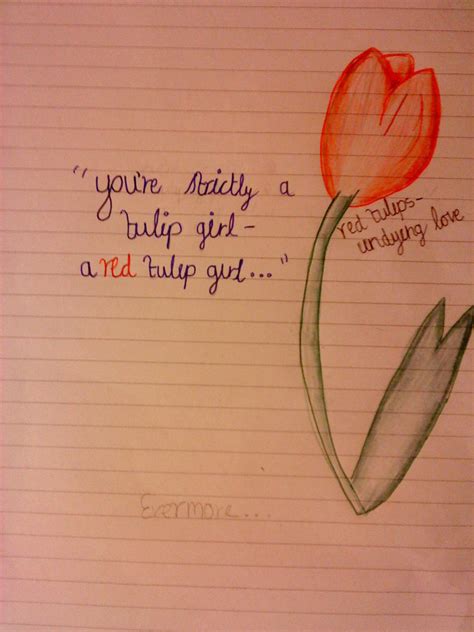 "you're strictly a
tulip girl-
a red tulip girl..."
red tulips-
undying love
Evermore...